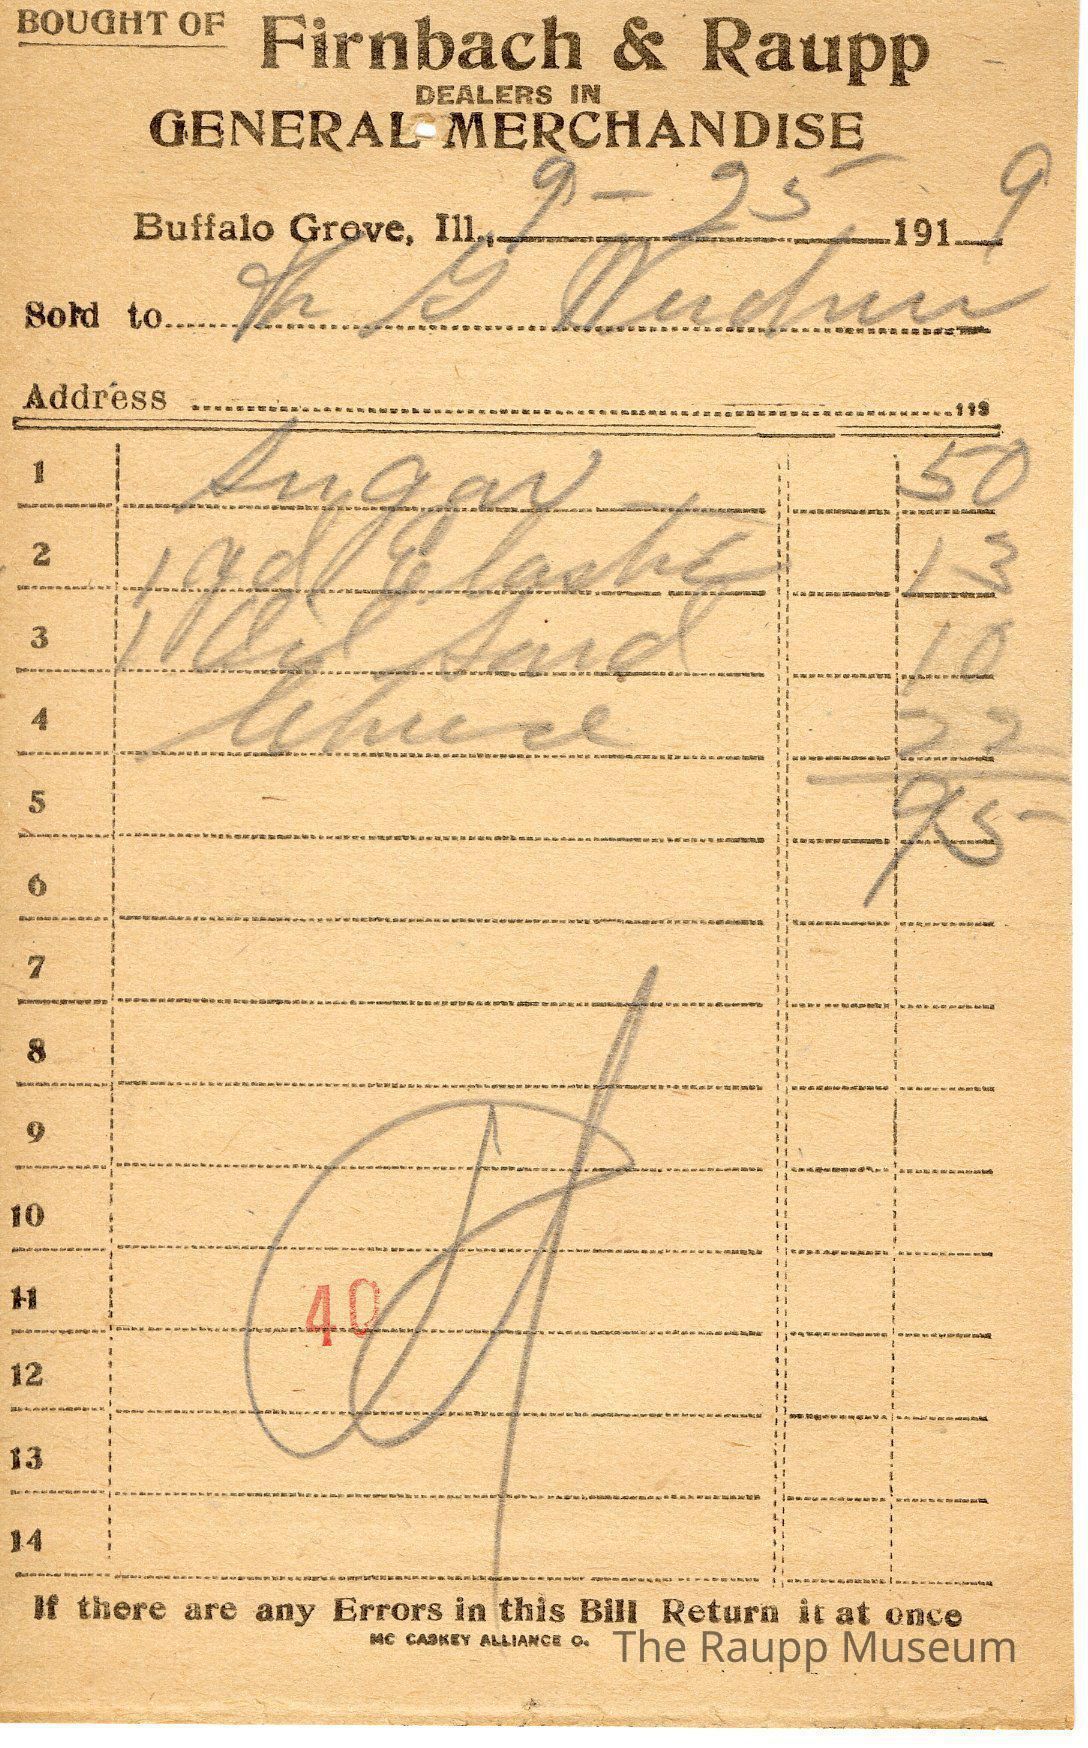 BOUGHT OF Firnbach & Raupp
DEALERS IN
GENERAL MERCHANDISE
Buffalo Grove, Ill., 9-25- 1919
Sold to G
Address 119
1 Sugar 50
2 1 yd Elastic 13
3 1 Oil Sard 10
4 Cheese 22
5 95
6
7
8
9
10
11 40
12
13
14
If there are any Errors in this Bill Return it at once
MC CASKEY ALLIANCE O.
The Raupp Museum